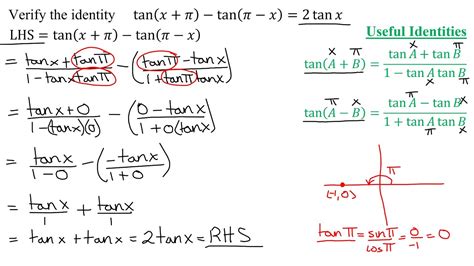 Verify the identity tan(x + π) − tan(π − x) = 2 tan x
LHS = tan(x + π) − tan(π − x)
= (tanx + tanπ)/(1 - tanx tanπ) - ((tanπ - tanx)/(1 + tanπ tanx))
= (tanx + 0)/(1 - (tanx)(0)) - ((0 - tanx)/(1 + 0(tanx)))
= tanx/(1 - 0) - (-tanx/(1 + 0))
= tanx/1 + tanx/1
= tanx + tanx = 2tanx = RHS
Useful Identities
x π x π
tan(A + B) = (tan A + tan B)/(1 − tan A tan B)
x π
π x π x
tan(A − B) = (tan A − tan B)/(1 + tan A tan B)
π x
π
(-1,0)
tanπ = sinπ/cosπ = 0/-1 = 0